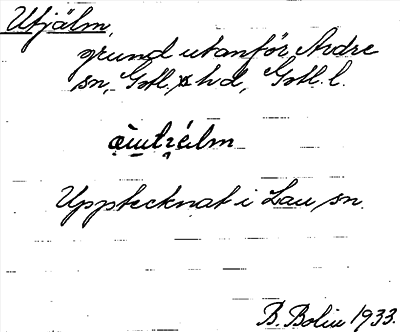 Utjälm,
grund utanför Ardre
sn, Gotl. s hd, Gotl. l.
Upptecknat i Lau sn.
B. Bolin 1933.